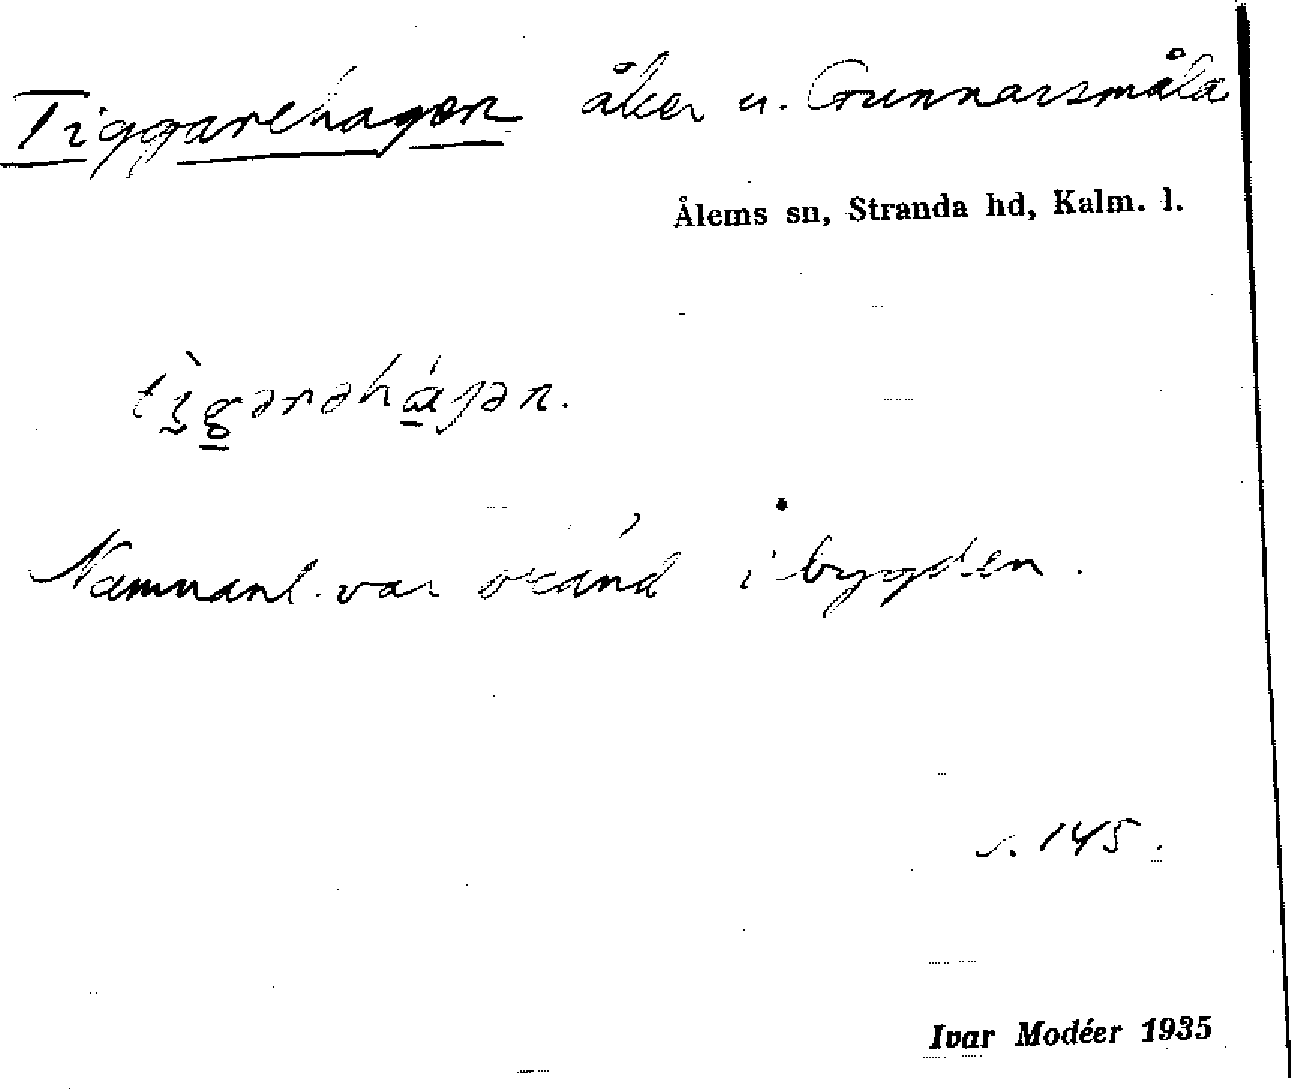 Tiggarehagen åker u. Gunnarsmåla
Ålems sn, Stranda hd, Kalm. l.
Namnanl. var okänd i bygden.
s. 145.
Ivar Modéer 1935